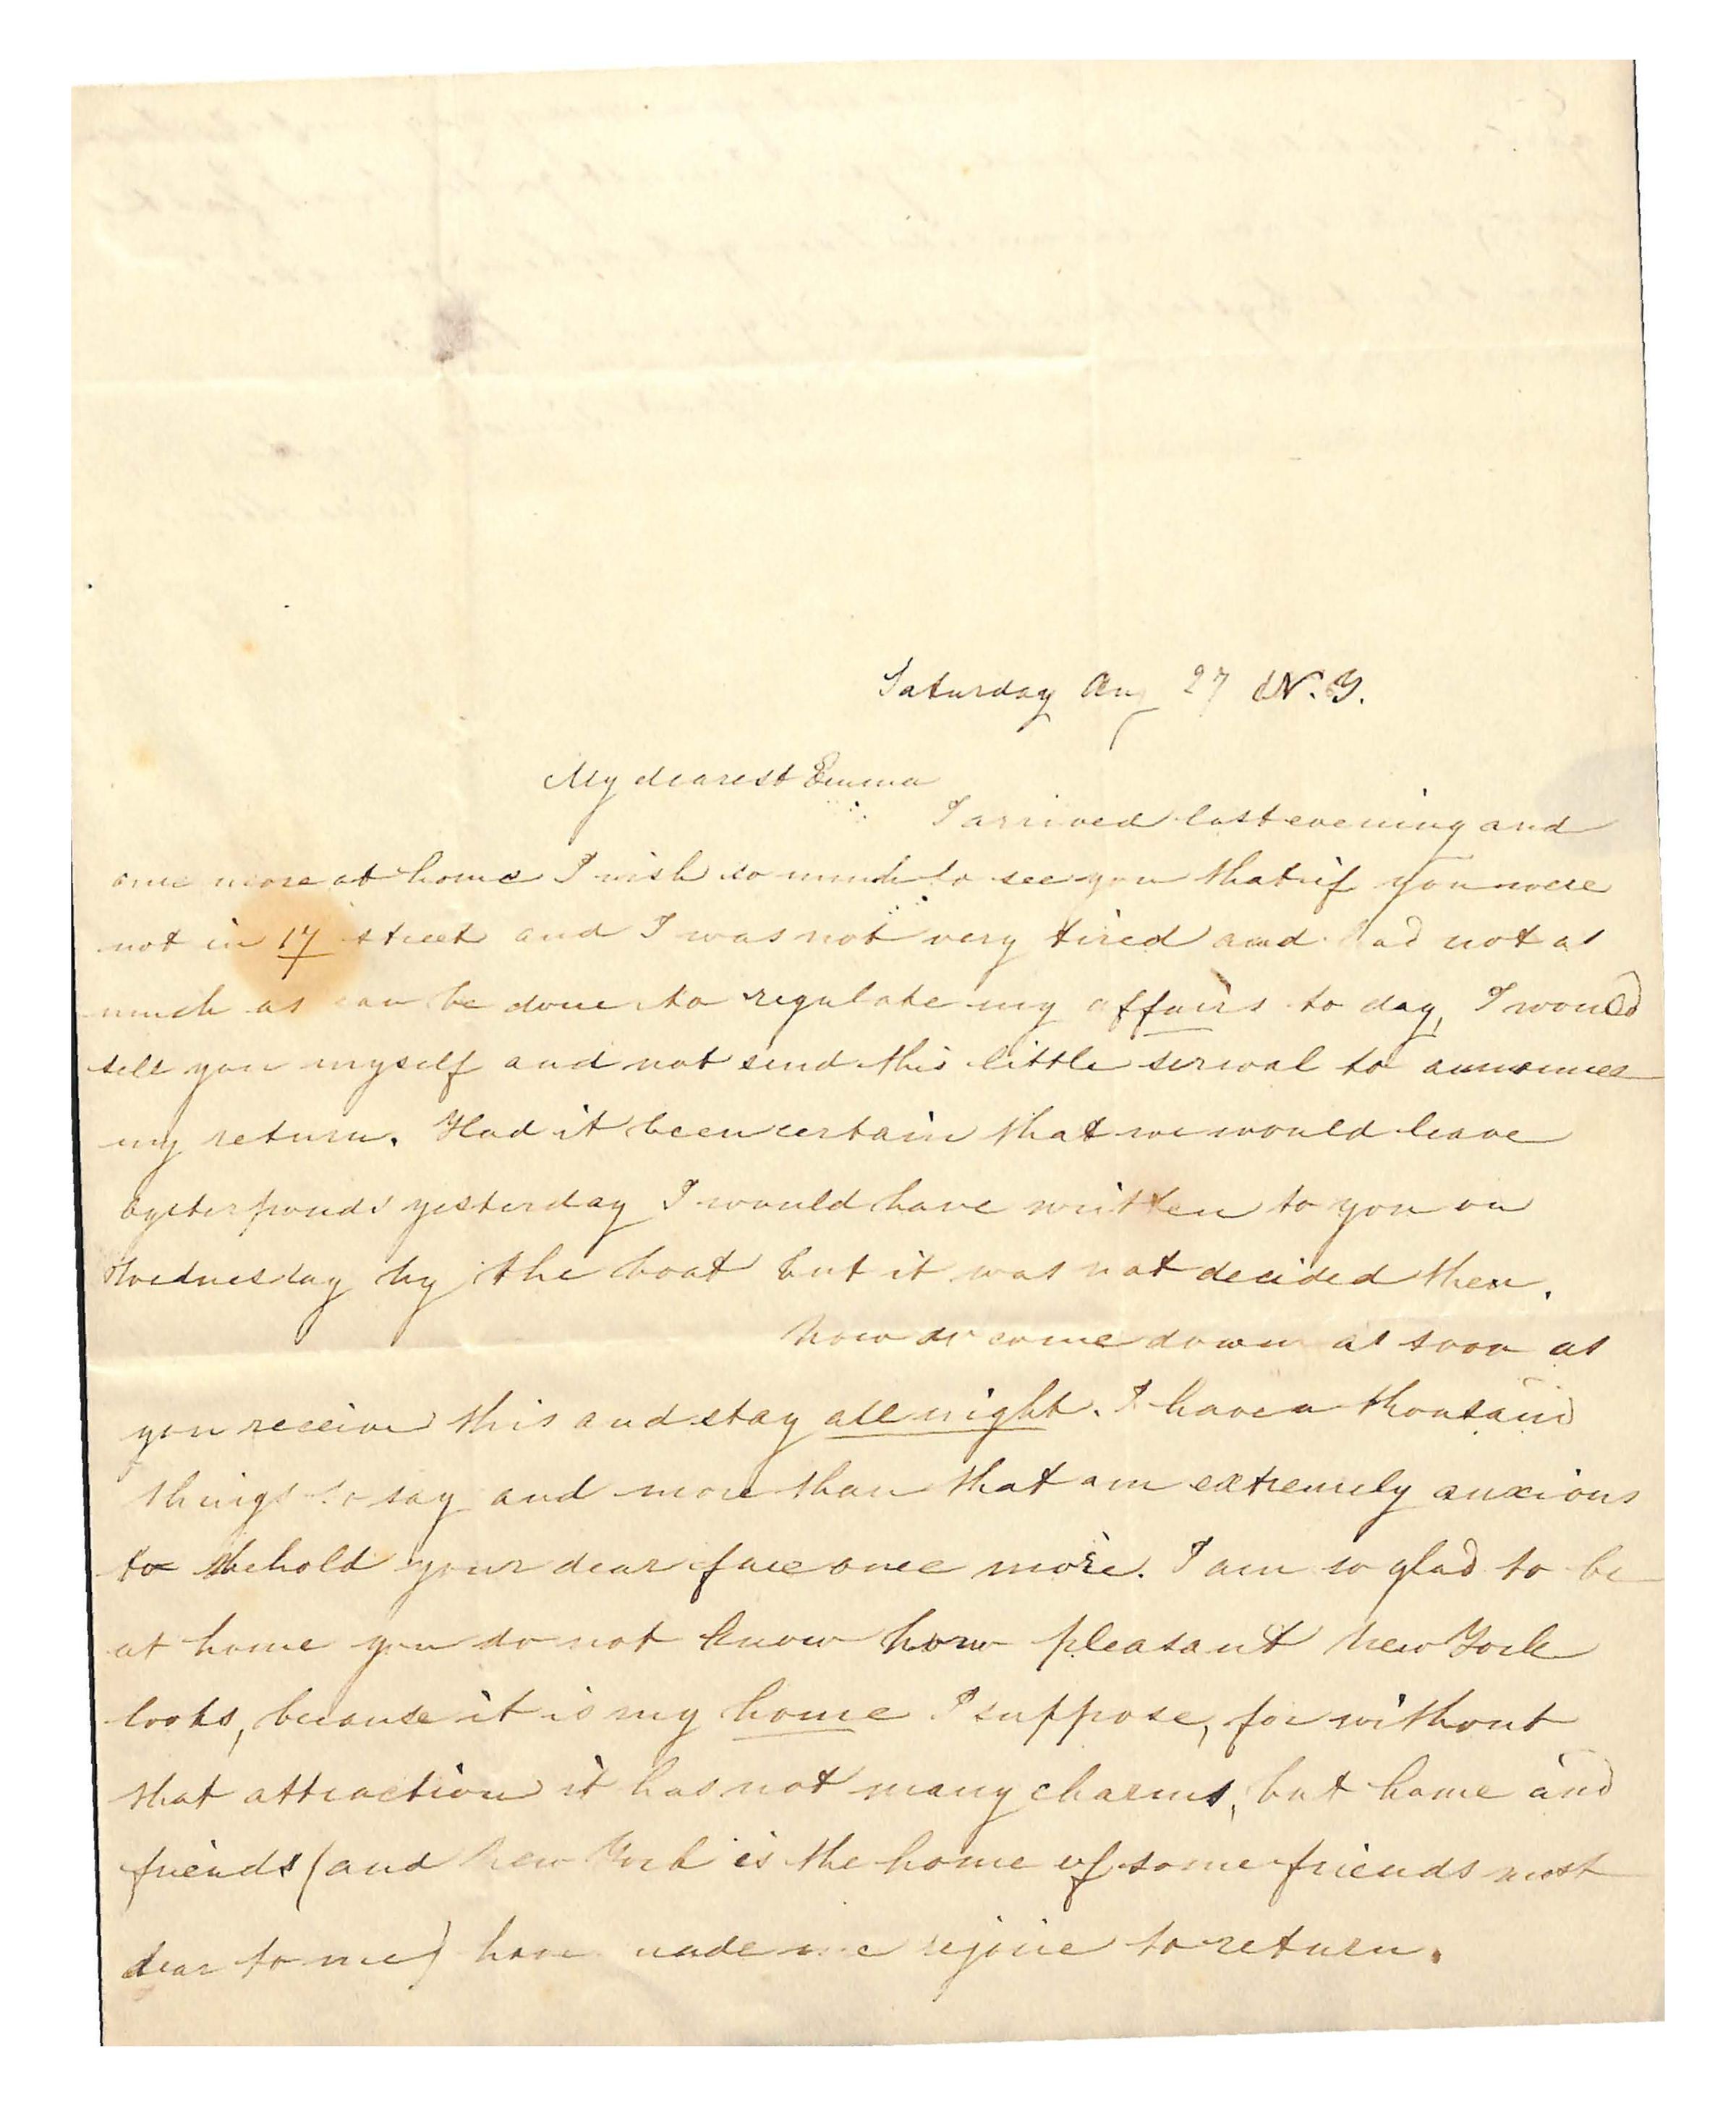 Saturday Aug 27 N.Y.
My dearest Emma
I arrived last evening and
once more at home I wish so much to see you that if you were
not in 17 street and I was not very tired and had not as
much as can be done to regulate my affairs to day, I would
tell you myself and not send this little to announce
my return. Had it been certain that we would leave
Oysterponds yesterday I would have written to you on
Wednesday by the boat but it was not decided then.
Now do come down as soon as
you receive this and stay all night. I have a thousand
things to say and more than that am extremely anxious
to behold your dear face once more. I am so glad to be
at home you do not know how pleasant New York
looks, because it is my home I suppose, for without
that attraction it has not many charms, but home and
friends (and New York is the home of some friends most
dear to me) have made me rejoice to return.